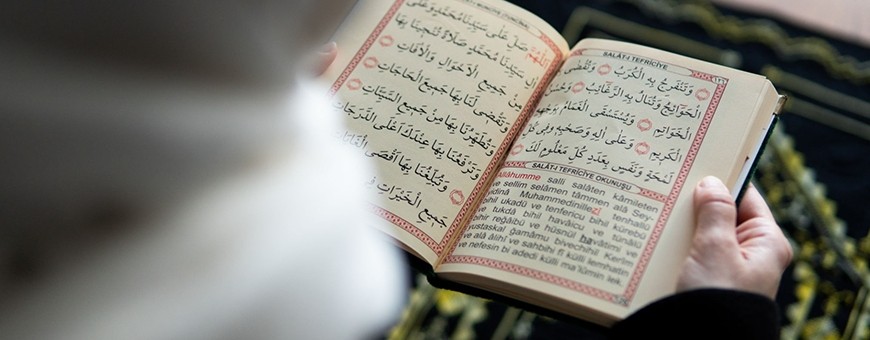 SALÂT-I TEFRİCİYE
وَتَنْفَرِجُ بِهِ الْكُرَبُ وَتُقْضَى بِهِ
الْحَوَائِجُ وَتُنَالُ بِهِ الرَّغَائِبُ وَحُسْنُ
الْخَوَاتِمِ وَيُسْتَسْقَى الْغَمَامُ بِوَجْهِهِ
الْكَرِيمِ وَعَلَى آلِهِ وَصَحْبِهِ فِي كُلِّ
لَمْحَةٍ وَنَفَسٍ بِعَدَدِ كُلِّ مَعْلُومٍ لَكَ
SALÂT-I TEFRİCİYE OKUNUŞU
salli salâten kâmileten
ve sellim selâmen tâmmen alâ Sey-
Muhammedinillezî tenhallü
bihil ukadü ve tenfericu bihil kürebü
ve tukdâ bihil havâicu ve tünâlü
bihir reğâibü ve hüsnül havâtimi ve
yustaskal ğamâmu bivechihil Kerîm
ve alâ âlihî ve sahbihî fî külli lemhatin
ve nefesin bi adedi külli ma'lûmin lek.
اَللّٰهُمَّ صَلِّ عَلَى سَيِّدِنَا مُحَمَّدٍ وَعَلَى
آلِ سَيِّدِنَا مُحَمَّدٍ صَلَاةً تُنْجِينَا بِهَا
مِنْ جَمِيعِ الْاَحْوَالِ وَالْآفَاتِ
وَتَقْضِى لَنَا بِهَا جَمِيعَ الْحَاجَاتِ
وَتُطَهِّرُنَا بِهَا مِنْ جَمِيعِ السَّيِّئَاتِ
وَتَرْفَعُنَا بِهَا عِنْدَكَ اَعْلَى الدَّرَجَاتِ
وَتُبَلِّغُنَا بِهَا اَقْصَى الْغَايَاتِ
جَمِيعِ الْخَيْرَاتِ فِى